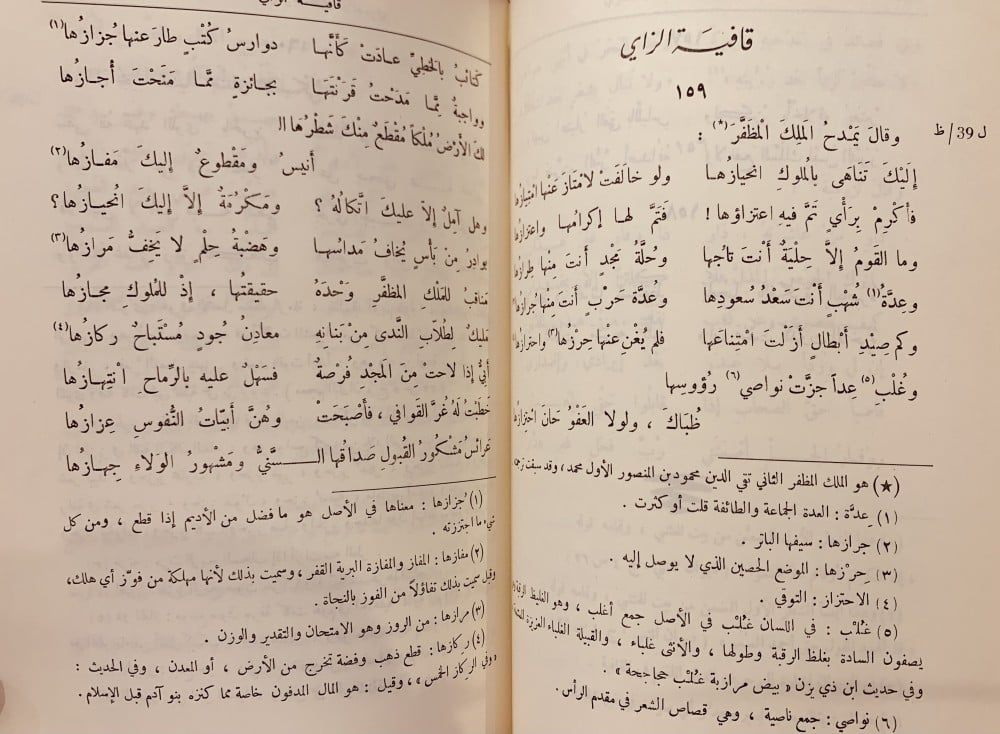 قافية الزاي
١٥٩
ل 39/ظ
وقالَ يَمْدحُ المَلِكَ المْظَفَّرَ (*) :
إِلَيْكَ تَنَاهَى بِالمُلوكِ انحيازُهــا ولو خالَفَتْ لامْتازَ عَنْها امْتِيازُها
فأكْرِمْ بِرَأْيٍ تَمَّ فيهِ اعتزاؤها ! فَتَمَّ لهــا إكرامُهــا واعتزازُها
وما القَومُ إلاَّ حِلْيَةٌ أَنْتَ تاجُها وحُلَّةُ مَجْدٍ أنتَ مِنْها طِرازُها
وعِدَّةُ(١) شُهْبٍ أَنْتَ سَعْدُ سُعودِها وعُدَّةُ حَرْبٍ أَنتَ مِنْها جُرازُها
وكم صِيْدِ أبْطالٍ أزَلْتَ امْتِناعَها فلم يُغْنِ عنْها حِرْزُها(٣) واحترازُها
وغُلْبِ(٥) عِداً جزَّتْ نواصي(٦) رُؤوسِها
ظُبَاكَ ، ولولا العَفْوُ حَانَ احْتِزازُها
(★) هو الملك المظفر الثاني تقي الدين محمود بن المنصور الأول محمد ، وقد سبقت ترجمته
(١) عِدَّة : العدة الجماعة والطائفة قلت أو كثرت .
(٢) جرازها : سيفها الباتر .
(٣) حِرْزها : الموضع الحصين الذي لا يوصل إليه .
(٤) الاحتراز : التوقي .
(٥) غُلْب : في اللسان غُلْب في الأصل جمع أغلب ، وهو الغليظ الرقبة
يصفون السادة بغلظ الرقبة وطولها ، والأنثى غلباء ، والقبيلة الغلباء العزيزة
وفي حديث ابن ذي يزن « بيض مرازبة غُلْب حجاجحة » .
(٦) نواصي : جمع ناصية ، وهي قصاص الشعر في مقدم الرأس .
كتائبُ بالخطيِّ عــادَتْ كَأَنَّهــا دوارسُ كُتْبٍ طارَ عنها جُزازُها(١)
وواجبةٌ مِمَّا مَدَحْتُ قَرنْتَهــا بجــائزةٍ ممَّــا مَنَحْتَ أُجــازُها
لكَ الأَرْضُ مُلْكاً مُقْطَعٌ مِنْكَ شَطْرُها الـ
أَنيسُ ومَقْطوعٌ إليكَ مَفــازُها(٢)
وهل آمِلٌ إلاَّ عليكَ اتِّكالُهُ ؟ ومَـكْرُمَةٌ إلاَّ إليكَ انْحيازُها؟
بوادِرُ مِنْ بَأْسٍ يُخافُ مَداسُهــا وهَضْبَةُ حِلْمٍ لا يَخِفُّ مَرازُها(٣)
مَناقبُ للمَلْكِ المظفَّرِ وَحْدَهُ حقيقتُها ، إذْ للمُلوكِ مجــازُها
مَليكٌ لِطُلاَّبِ النَّدى مِنْ بَنانِهِ معادِنُ جُودٍ مُسْتَباحٌ ركازُها(٤)
أَبيٌّ إذا لاحتْ مِنَ المَجْدِ فُرْصَةٌ فسَهْلٌ عليه بالرِّماحِ انْتِهــازُها
خَطَبْتُ لَهُ غُرَّ القَوافي ، فأَصْبَحَتْ وهُنَّ أبيّاتُ النُّفوسِ عِزازُها
عَرائسُ مَشْكورُ القُبولِ صَداقُها الـــسَّنيُّ ومَشْهورُ الوَلاءِ جِهــازُها
(١) جُزازها : معناها في الأصل هو ما فضل من الأديم إذا قطع ، ومن كل
شيء ما اجتززته .
(٢) مفازها : المفاز والمفازة البرية القفر ، وسميت بذلك لأنها مهلكة من فوّز أي هلك،
وقيل سميت بذلك تفاؤلاً من الفوز بالنجاة .
(٣) مرازها : من الروز وهو الامتحان والتقدير والوزن .
(٤) ركازها : قطع ذهب وفضة تخرج من الأرض ، أو المعدن ، وفي الحديث :
« وفي الركاز الخمس » ، وقيل : هو المال المدفون خاصة مما كنزه بنو آدم قبل الإسلام .